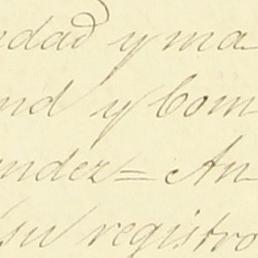 ndad y ma
nd y Com
andez = An
su registro